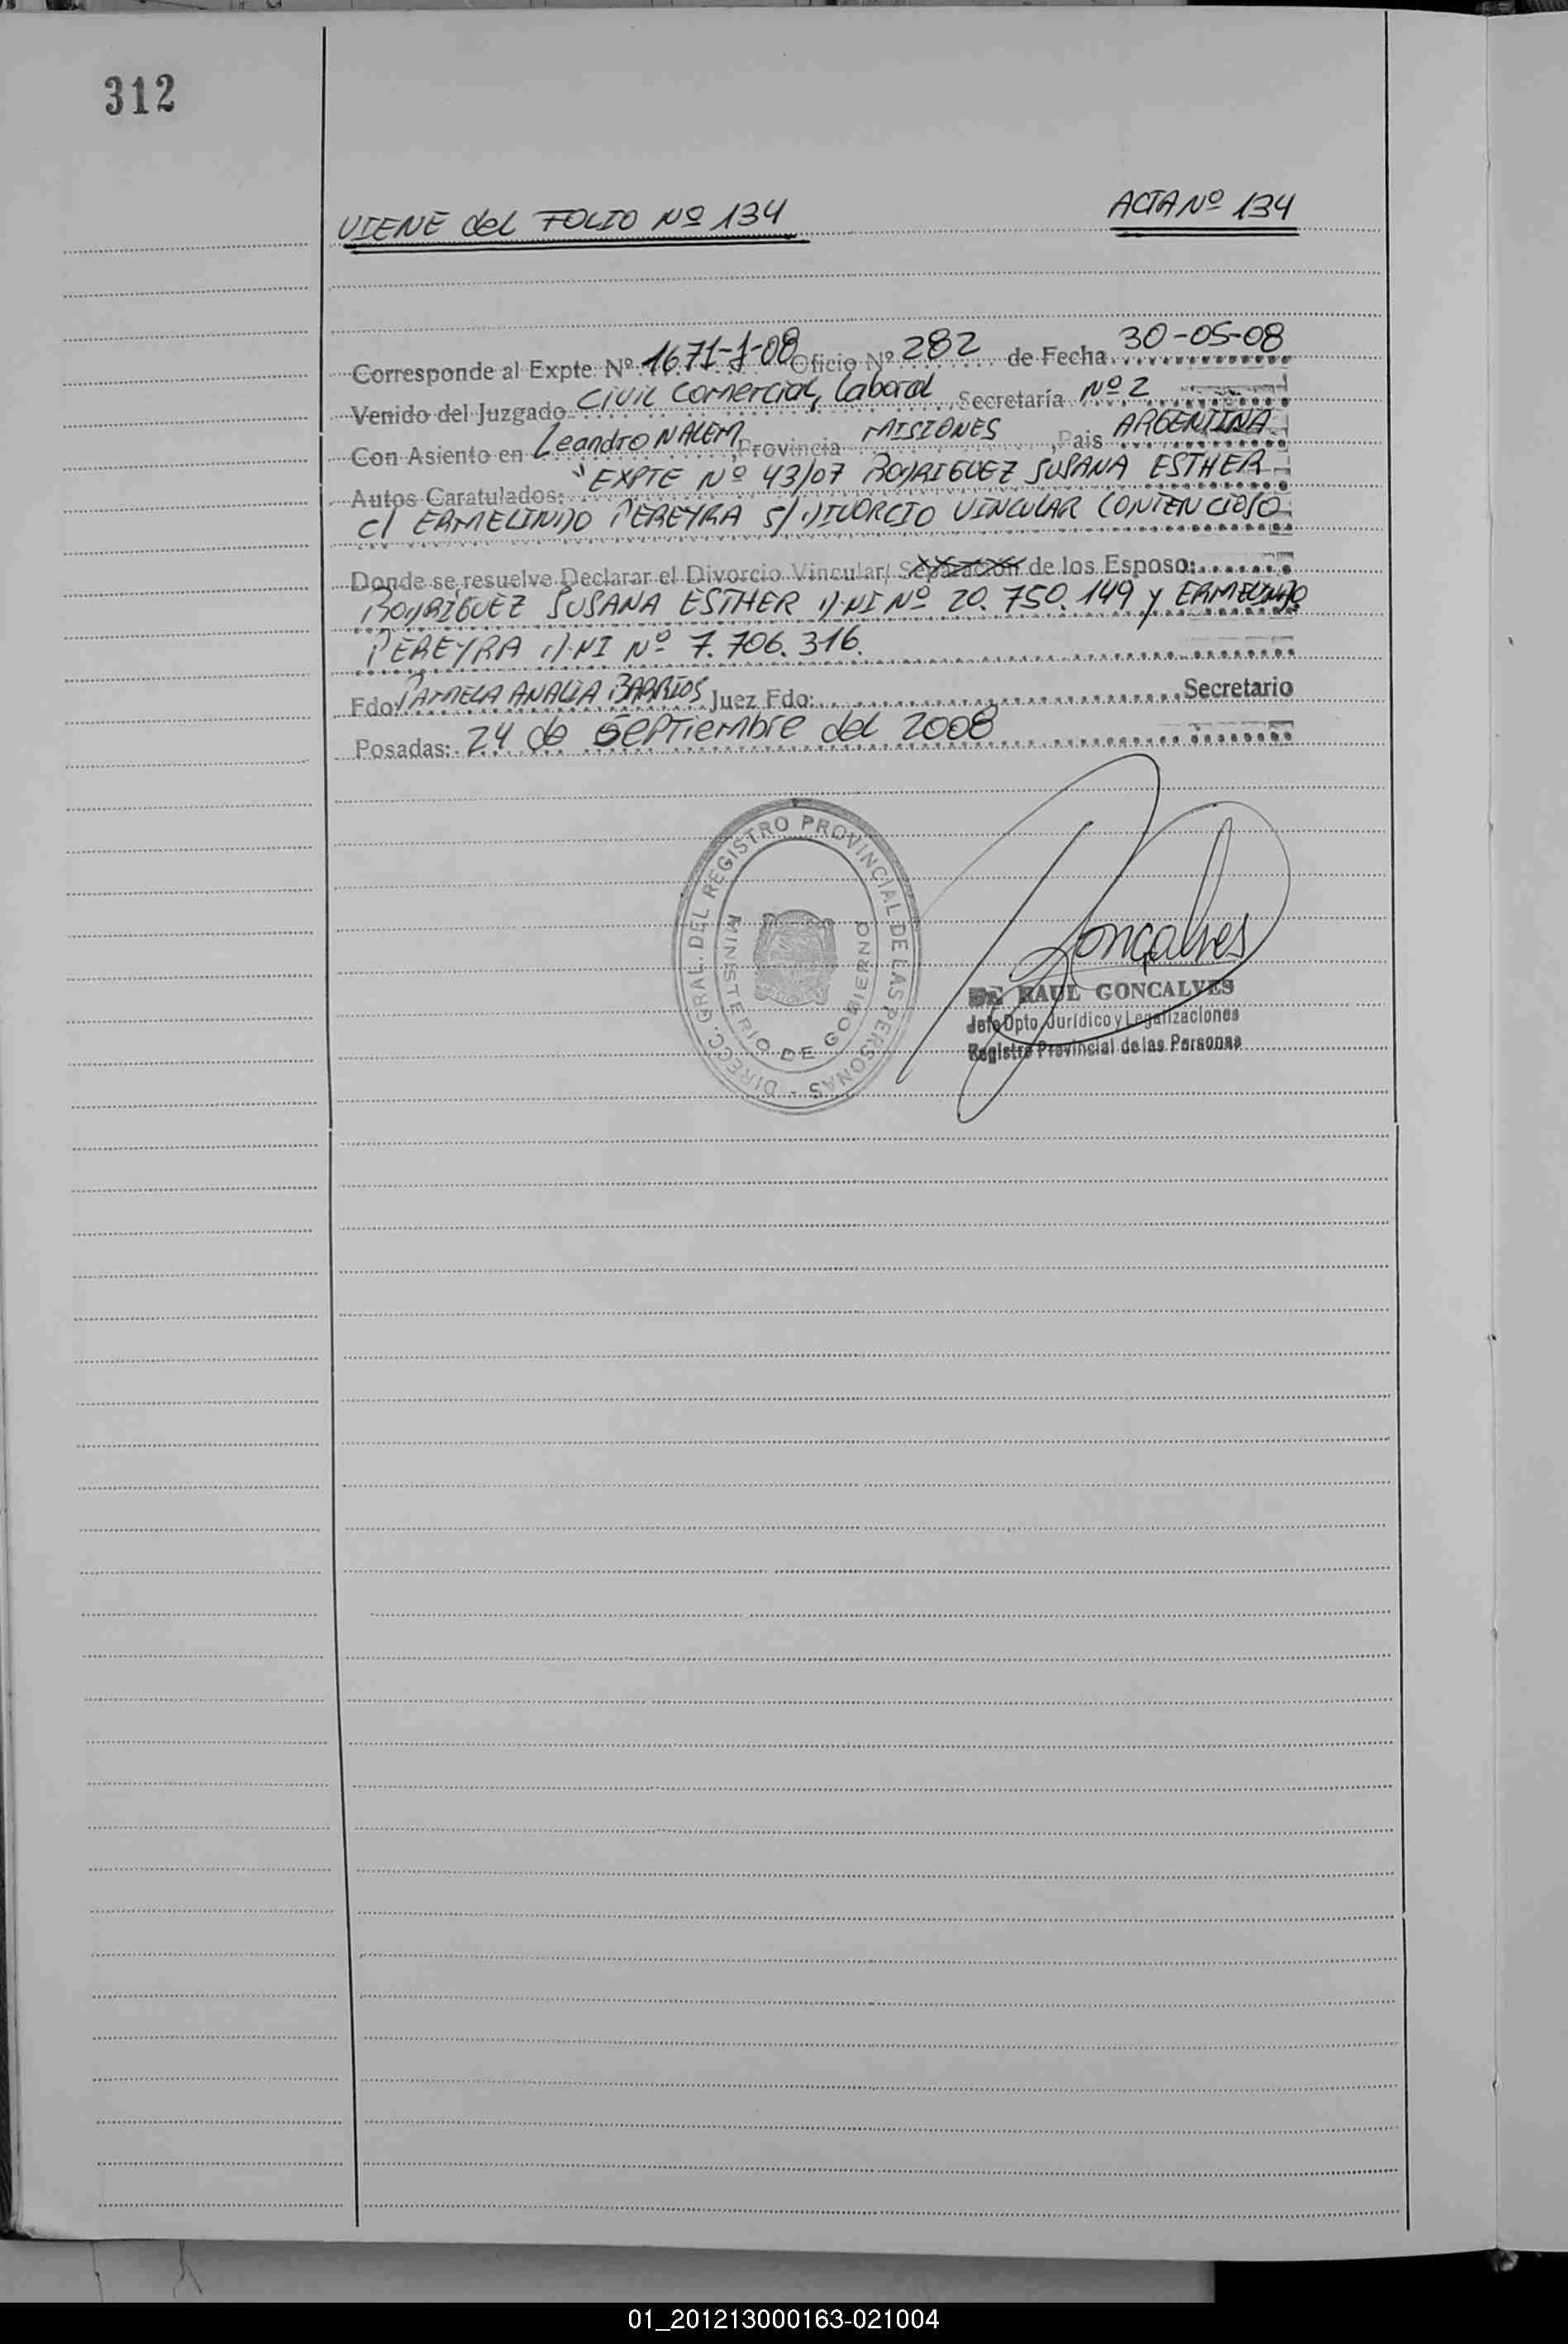 312
VIENE del FOLIO Nº 134
ACTA Nº 134
Corresponde al Expte. Nº 1671-J-08 Oficio Nº 282 de Fecha 30-05-08
Venido del Juzgado Civil Comercial, Laboral, Secretaría Nº 2
Con Asiento en Leandro N ALEM, Provincia MISIONES, Pais ARGENTINA
Autos Caratulados: "EXPTE Nº 43/07 RODRIGUEZ SUSANA ESTHER
c/ ERMELINDO PEREYRA S/ DIVORCIO VINCULAR CONTENCIOSO
Donde se resuelve Declarar el Divorcio Vincular/ Separación de los Esposo:
RODRIGUEZ SUSANA ESTHER DNI Nº 20.750.149 y ERMELINDO
PEREYRA DNI Nº 7.706.316.
Fdo: PAMELA ANALIA BARRIOS Juez Fdo: Secretario
Posadas: 24 de Septiembre del 2008
DIRECC. GRAL. DEL REGISTRO PROVINCIAL DE LAS PERSONAS -
MINISTERIO DE GOBIERNO
Goncalves
RAUL GONCALVES
Jefe Dpto. Jurídico y Legalizaciones
Registro Provincial de las Personas
01_201213000163-021004